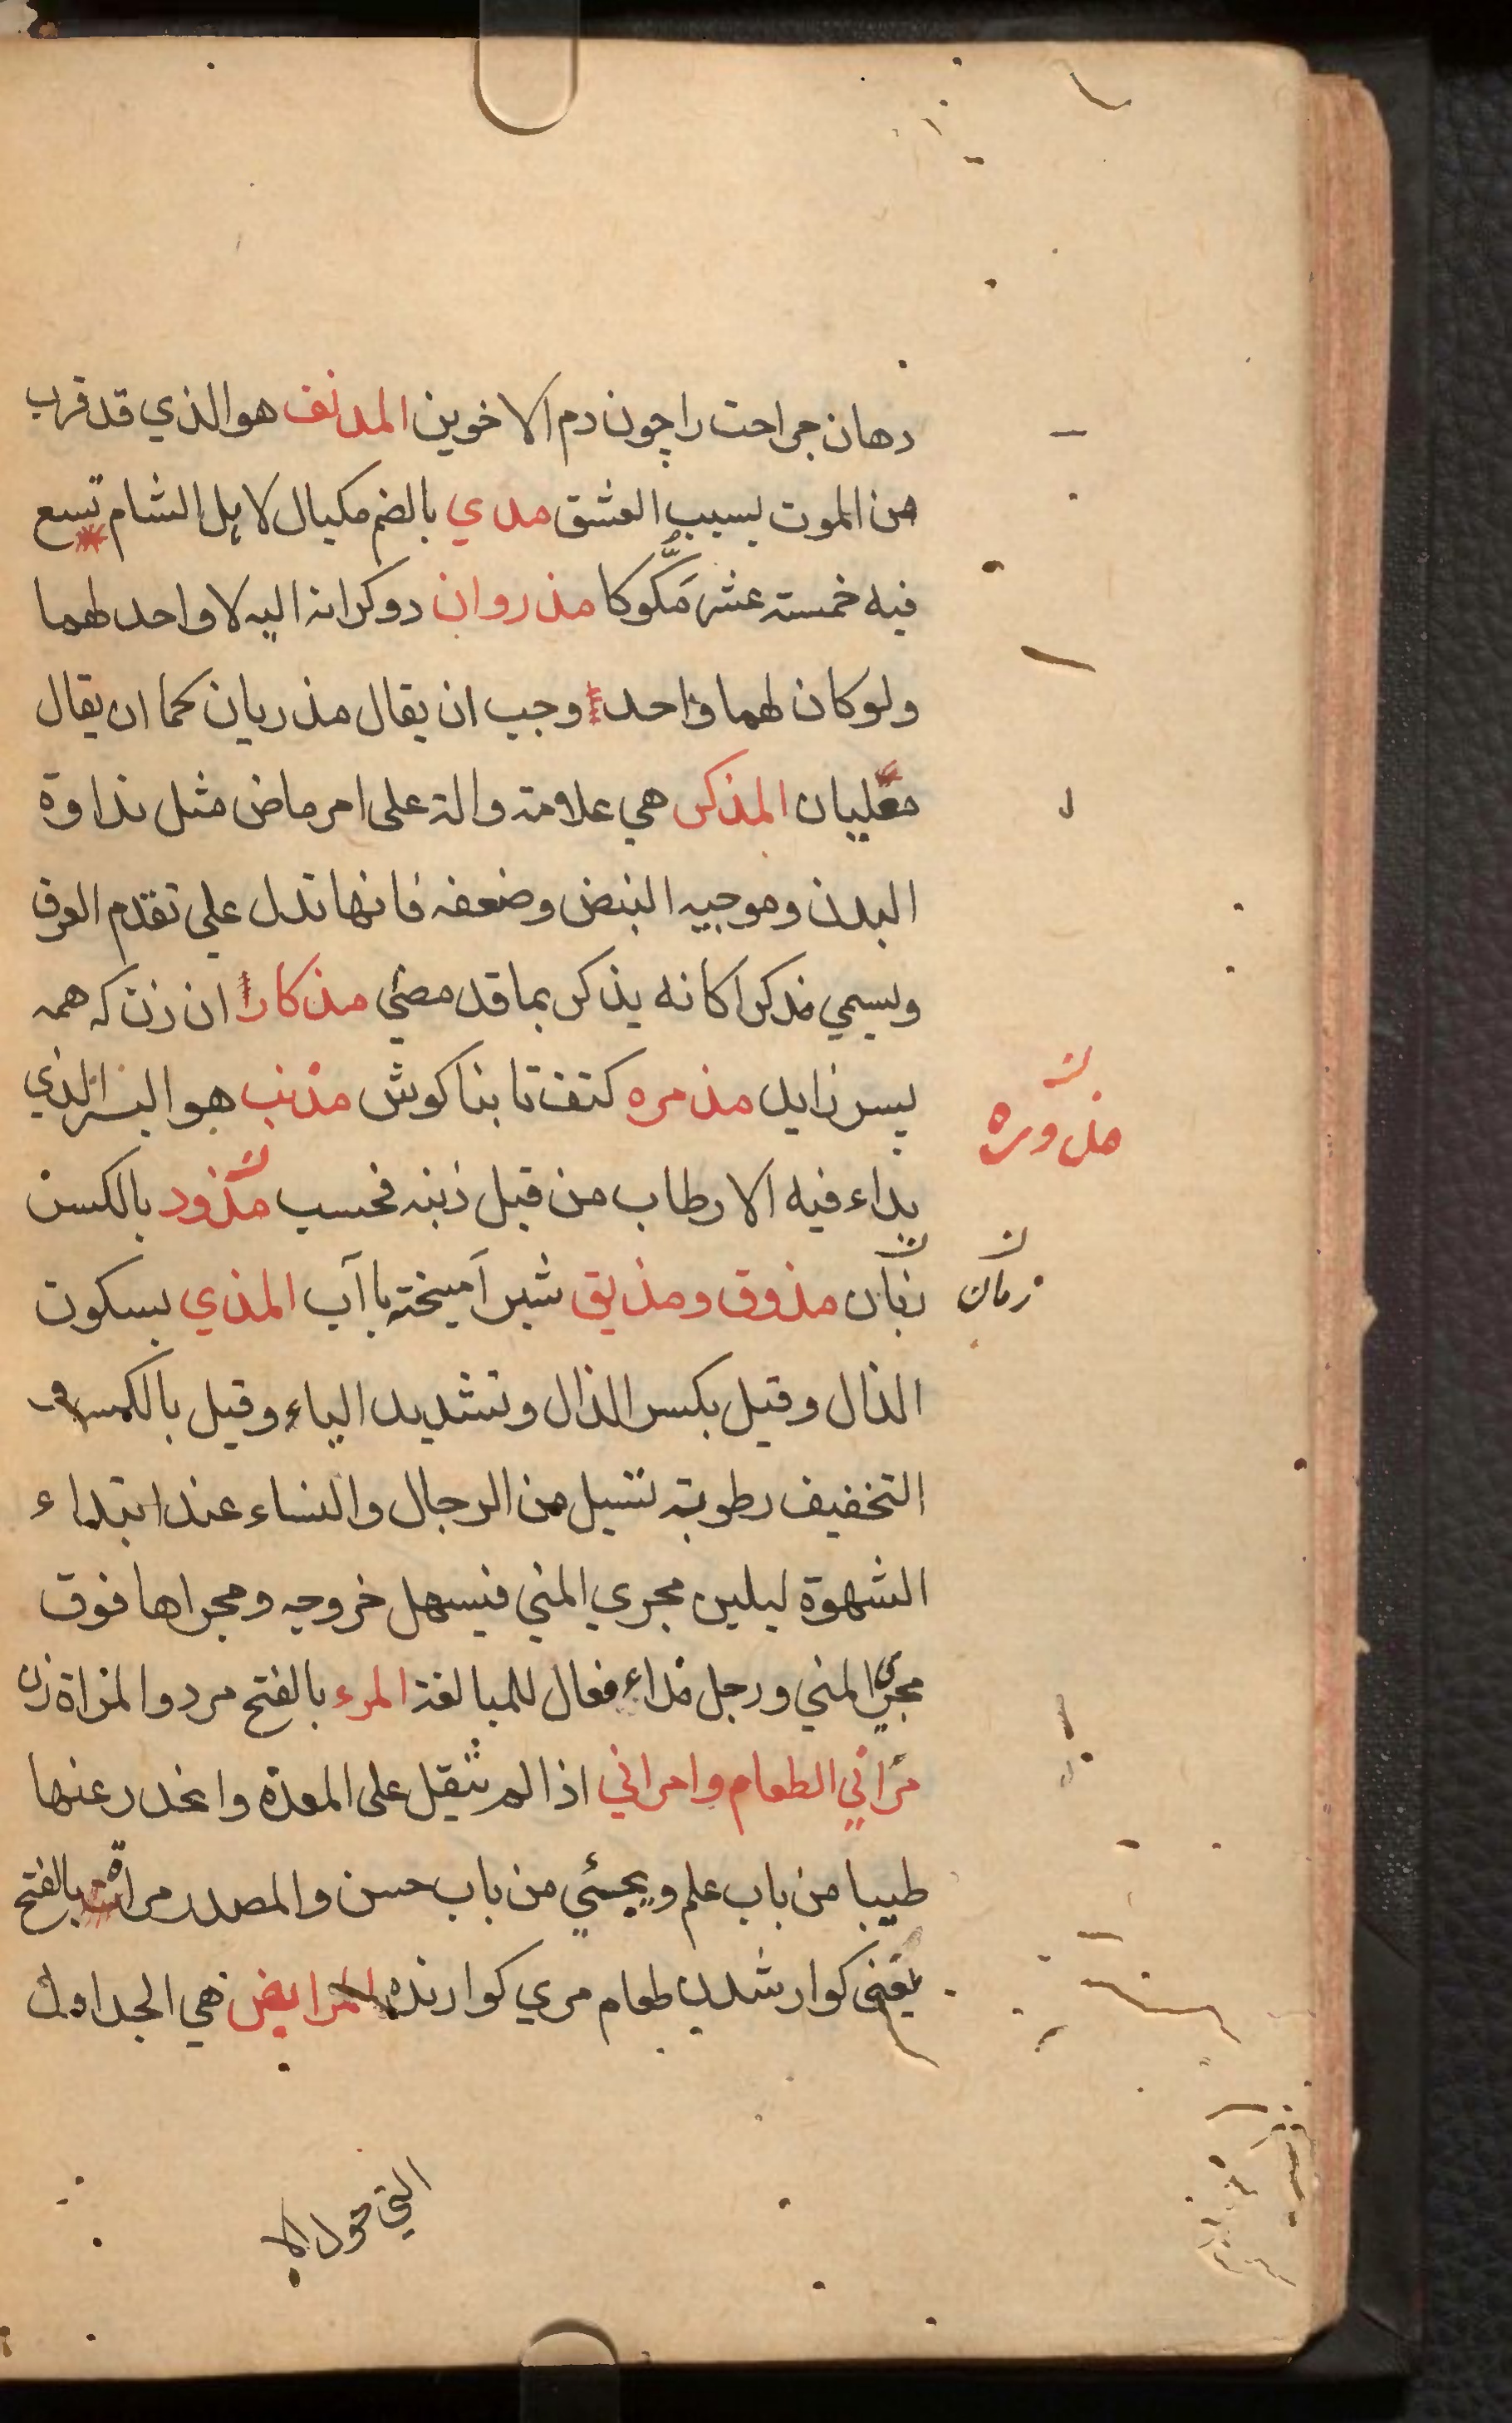 دهان جراحت را چون دم الاخوين المدنف هو الذي قد قرب
من الموت بسبب العشق مدي بالضم مكيال لاهل الشام تسع
فيه خمسته عشر مَكّوكا مذروان دو كرانه اليه لا واحد لهما
ولو كان لهما واحد وجب ان يقال مذريان كما ان يقال
مقليان المذكر هي علامته والة على امر ماض مثل نداوة
البدن وموجيه النبض وضعفه فانها تدل علي تقدم العرق
ويسمي مذكرا كانه يذكر بما قد مضي مذكار ان زن كه همه
پسر زايد مذمره كتف تا بناكوش مذنب هو البسر الذي
بداء فيه الارطاب من قبل ذنبه فحسب مذود بالكسر
زبان مذوق ومذيق شير آميخته با آب المذي بسكون
الذال وقيل بكسر الذال وتشديد الياء وقيل بالكسر و
التخفيف رطوبته تسيل من الرجال والنساء عند ابتداء
الشهوة ليلين مجري المني فيسهل خروجه ومجراها فوق
مجري المني ورجل مذاء فعال للمبالغة المرء بالفتح مرد والمراة زن
مرّاني الطعام وامراني اذا لم يثقل على المعدة وانحدر عنها
طيبا من باب علم ويجئي من باب حسن والمصدر مراة بالفتح
يعنى كوارشدن طعام مري كوارنده المرابض هي الجداول
مذوره
زمان
التي حول الا